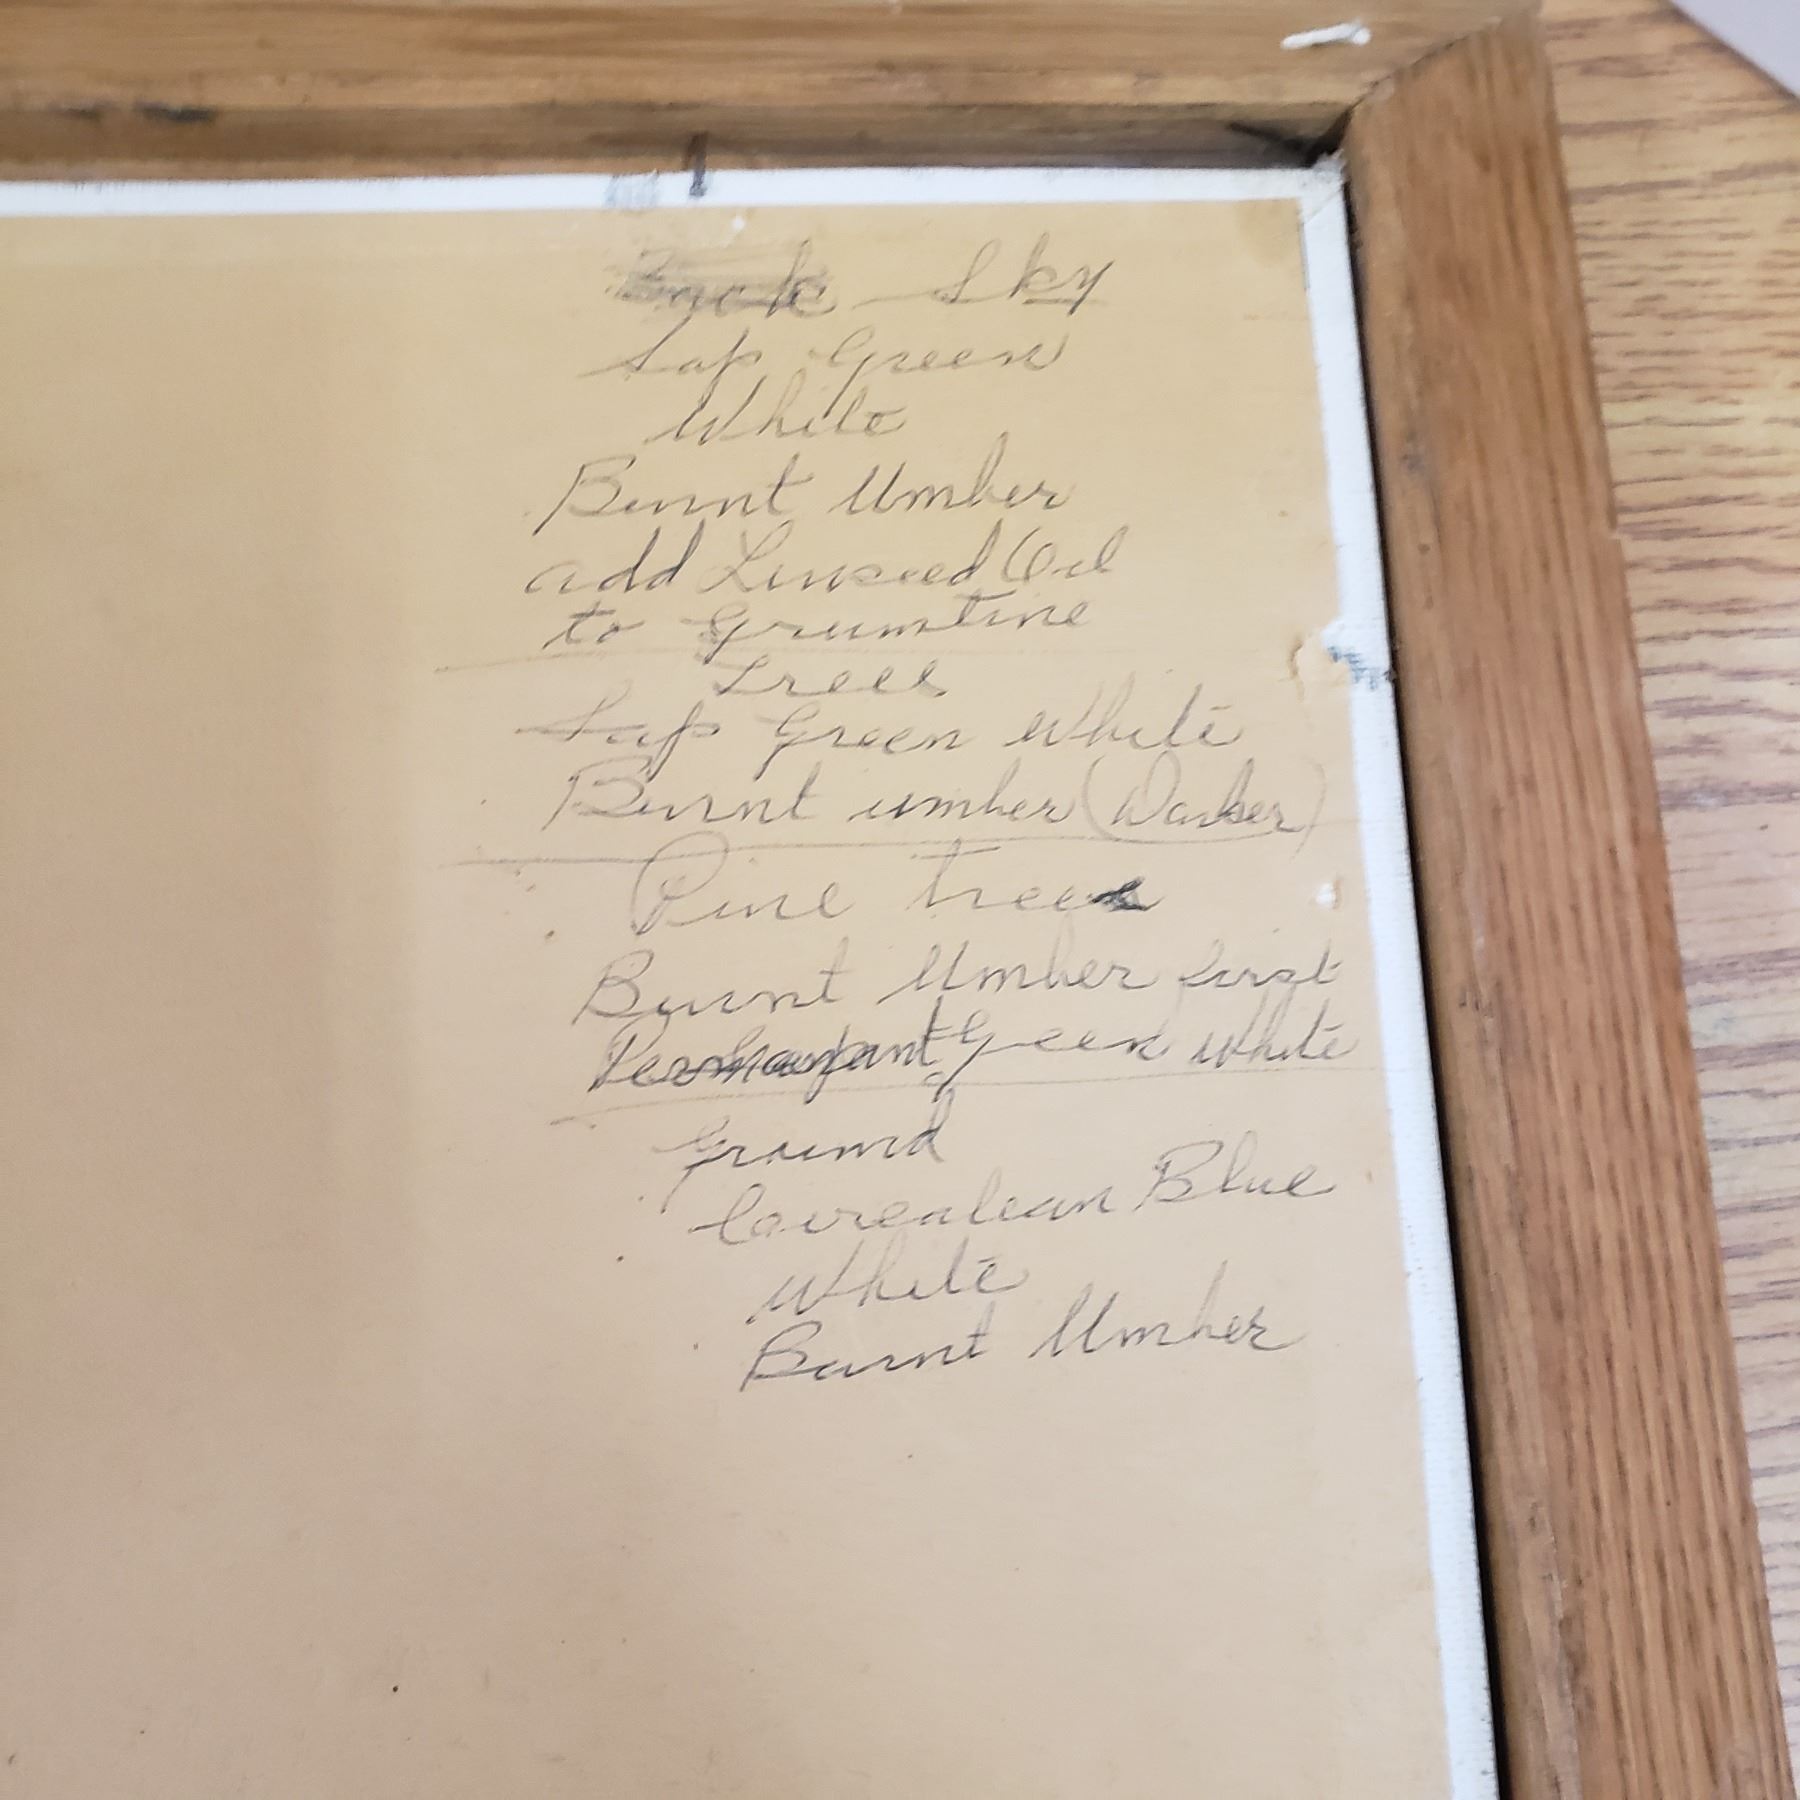 Sky
Sap Green
White
Burnt Umber
add Linseed Oil
to Grumtine
Trees
Sap Green White
Burnt umber (Darker)
Pine trees
Burnt Umber first
Permanant Green White
Ground
Coerealean Blue
White
Burnt Umber